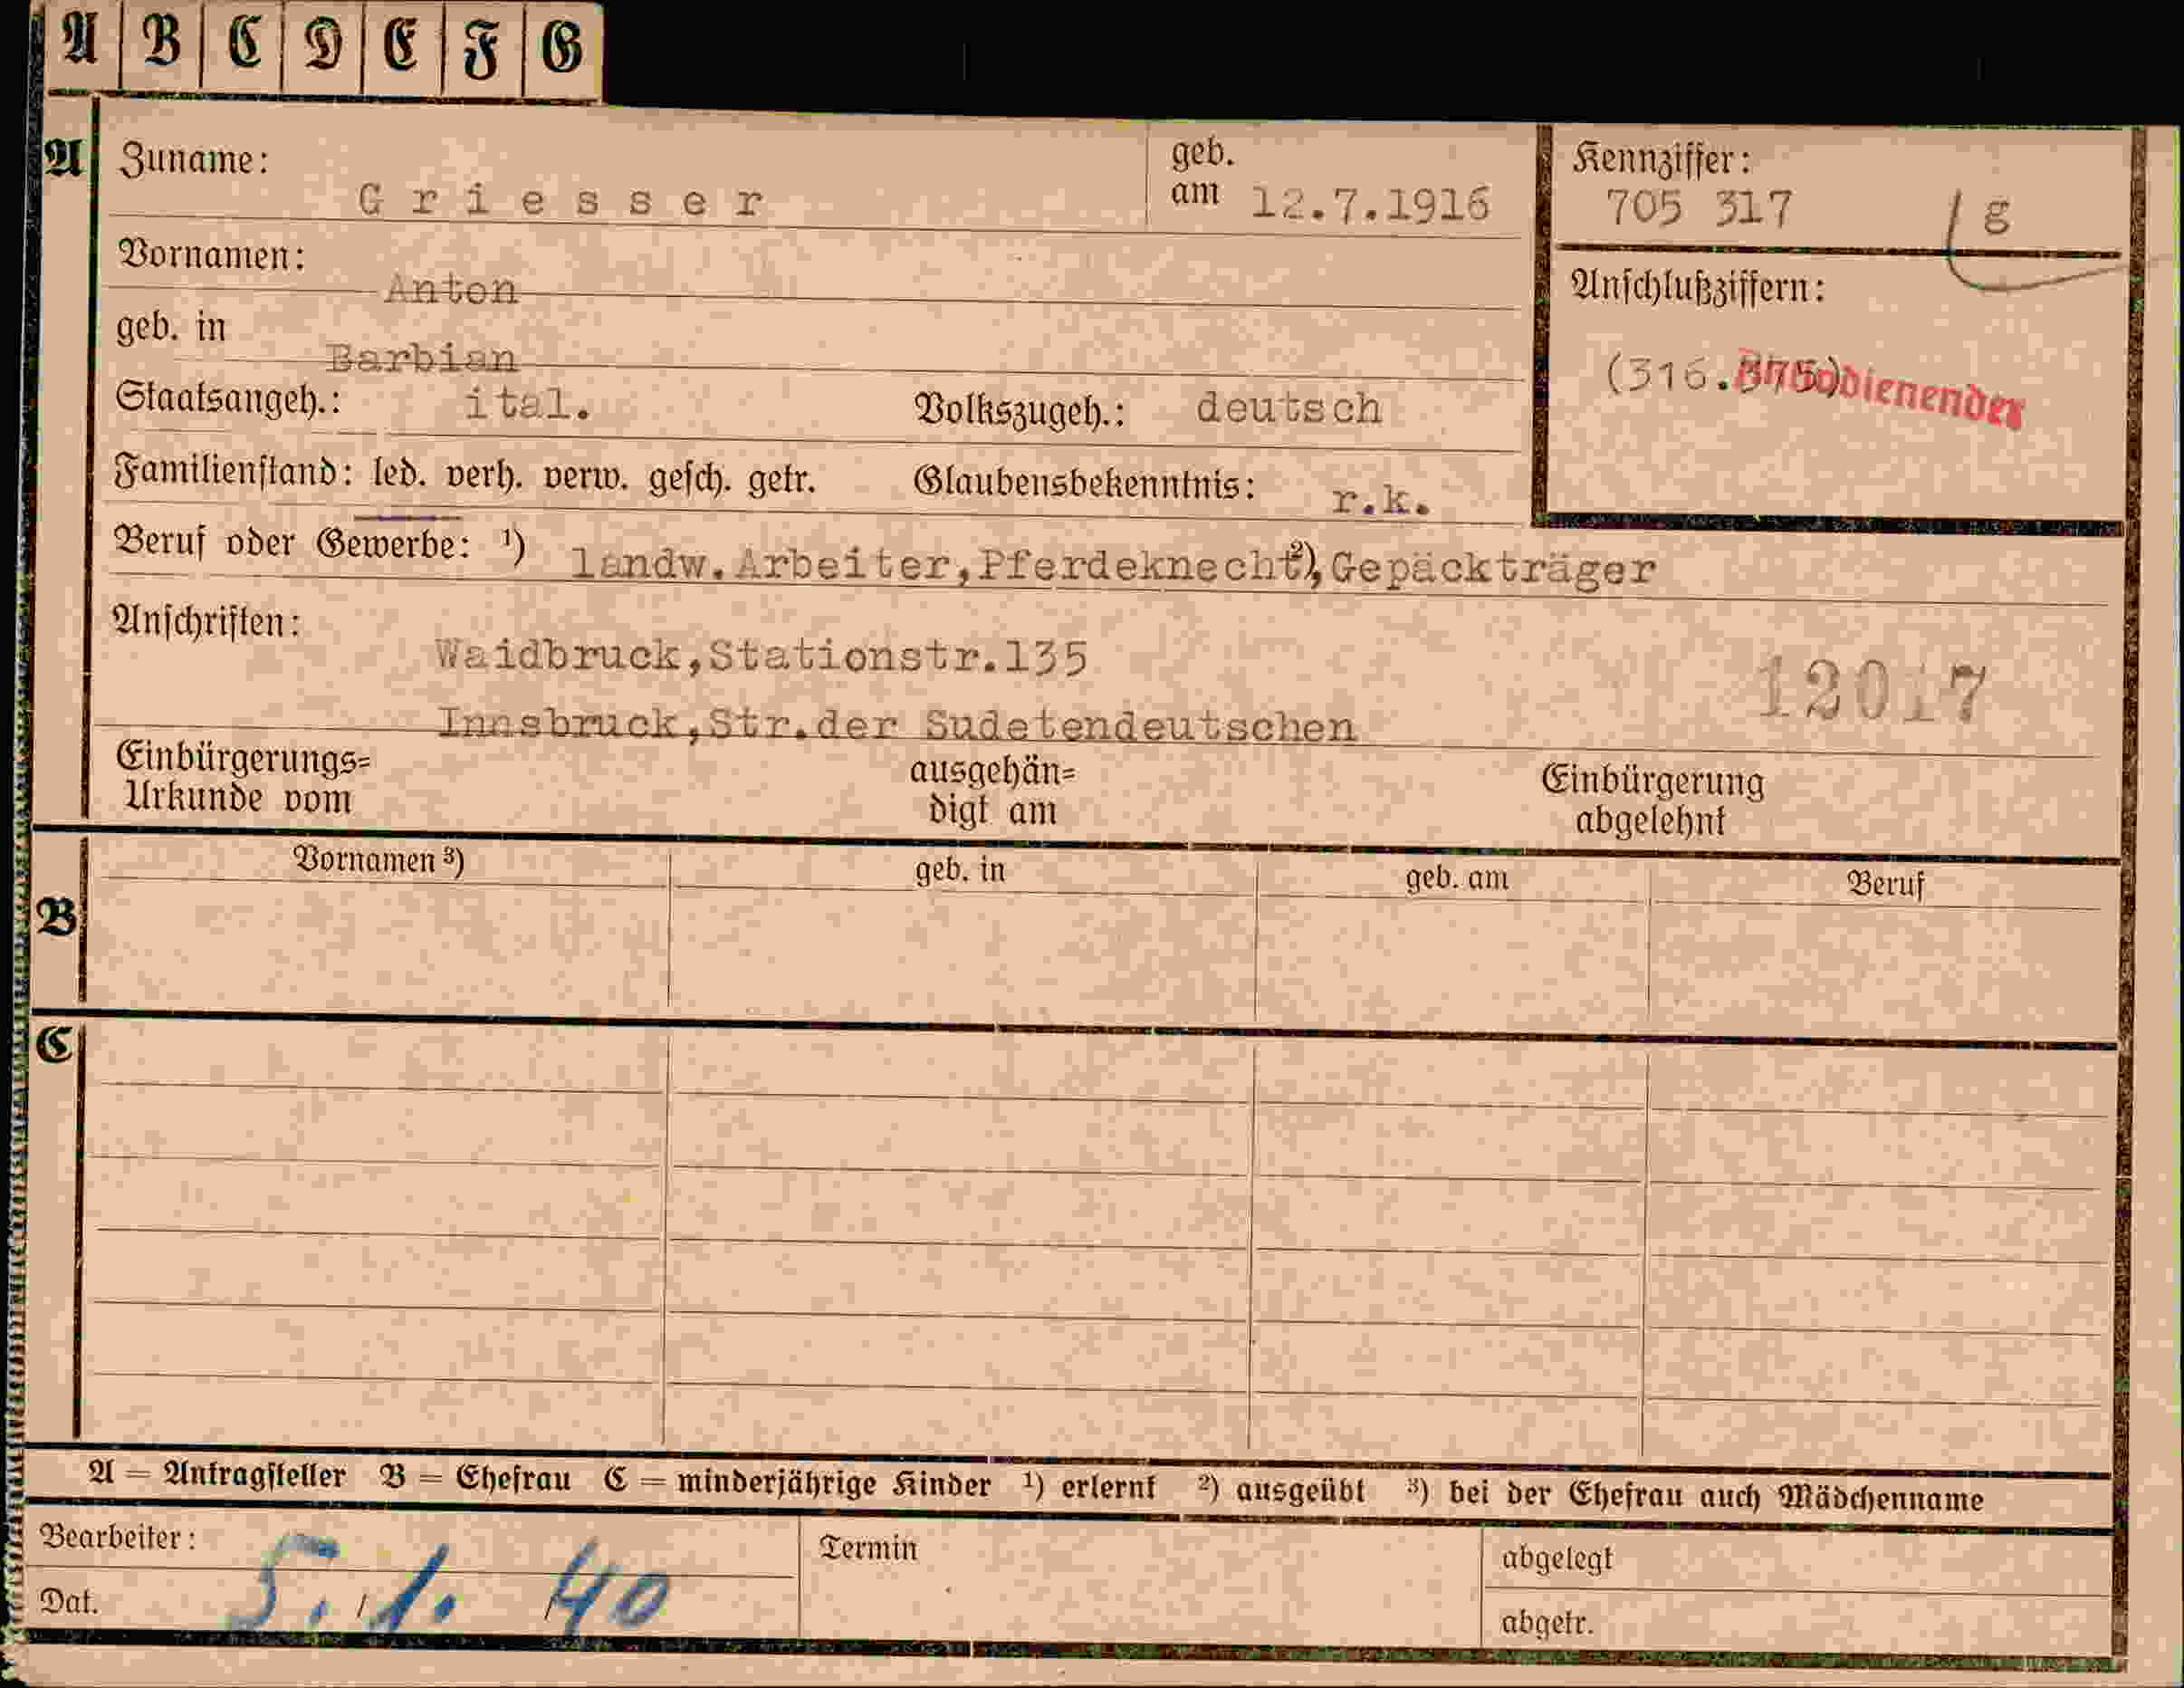 A B C D E F G
A Zuname: Griesser geb. am 12.7.1916 Kennziffer: 705 317 / g
Vornamen: Anton
Anschlußziffern:
geb. in Barbian
(316.375)
Staatsangeh.: ital. Volkszugeh.: deutsch
Familienstand: led. verh. verw. gesch. getr. Glaubensbekenntnis: r.k.
Beruf oder Gewerbe: ¹) landw. Arbeiter, Pferdeknecht ²), Gepäckträger
Anschriften:
Waidbruck, Stationstr. 135
12017
Innsbruck, Str. der Sudetendeutschen
Einbürgerungs= Urkunde vom ausgehän= digt am Einbürgerung abgelehnt
B Vornamen ³) geb. in geb. am Beruf
C
A = Antragsteller B = Ehefrau C = minderjährige Kinder ¹) erlernt ²) ausgeübt ³) bei der Ehefrau auch Mädchenname
Bearbeiter: Termin abgelegt
Dat. 5. 1. 40 abgetr.